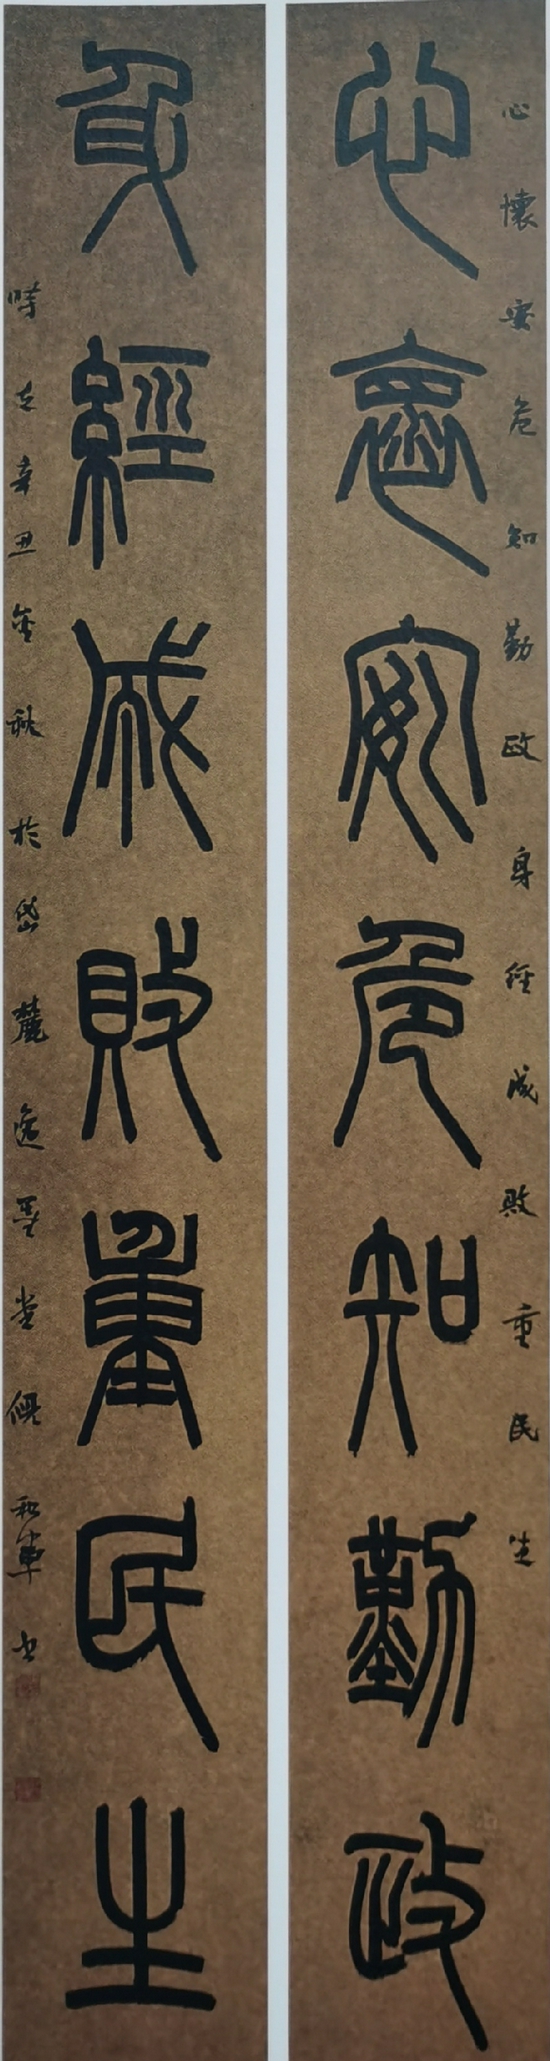 心懷安危知勤政身經成敗重民生
心懷安危知勤政
身經成敗重民生
時在辛丑金秋於岱麓逸墨堂 和軍書